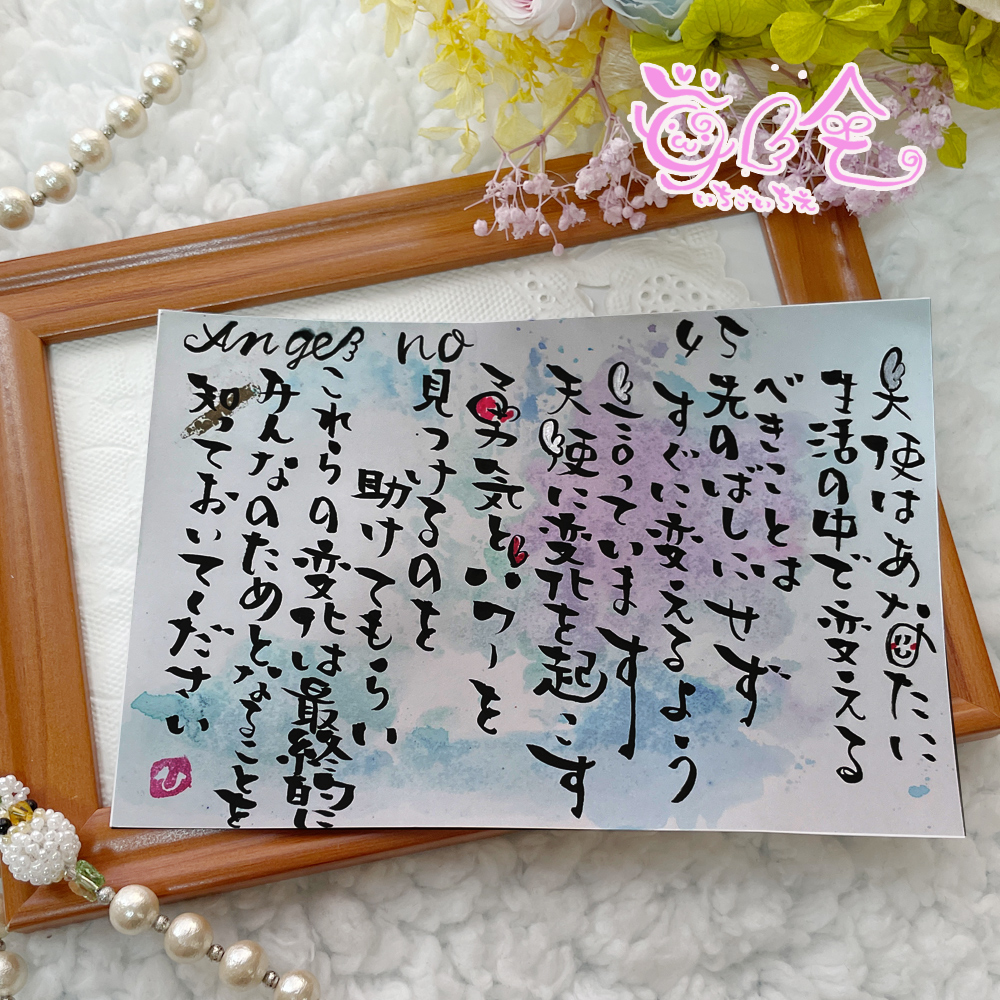 Angel no 45
天使はあなたに
生活の中で変える
べきことは
先のばしにせず
すぐに変えるよう
言っています
天使に変化を起こす
勇気とパワーを
見つけるのを
助けてもらい
これらの変化は最終的に
みんなのためとなることを
知っておいてください
ひ
いちごいちえ